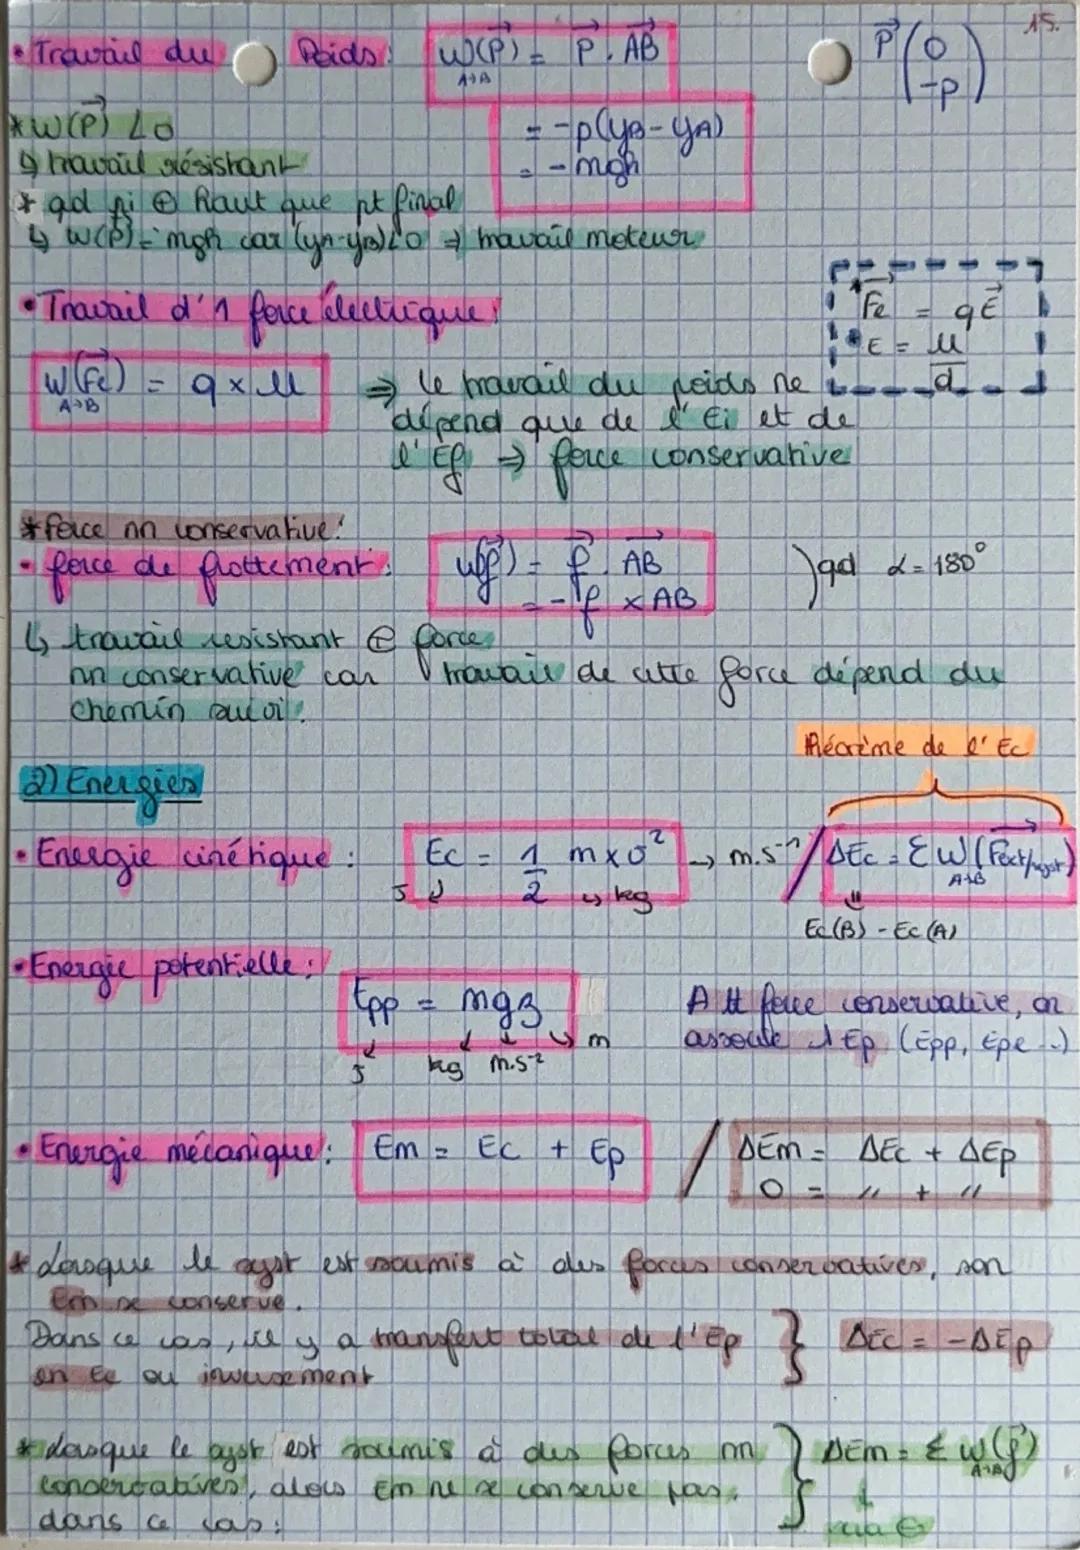 15.
• Travail du Poids: W(P⃗) = P⃗ . AB⃗
A→B
P⃗ ( 0
-P )
* W(P⃗) < 0
↳ travail résistant
= -p(yB - yA)
= - mgh
* qd pi ⊕ haut que pt final
↳ W(P) = mgh car (yA-yB)<0 ⇒ travail moteur
• Travail d'1 force électrique:
• Fe⃗ = qE⃗
• E = U/d
W(Fe⃗) = q x U
A→B
⇒ le travail du poids ne
dépend que de l'Ei et de
l'Ef ⇒ force conservative
* force nn conservative:
• force de frottement: W(f⃗) = f⃗ . AB⃗
= -f x AB
) qd α = 180°
↳ travail resistant ⊕ force
nn conservative car travail de cette force dépend du
chemin suivi.
Théorème de l'Ec
2) Energies
• Energie cinétique: Ec = 1/2 m x v² → m.s⁻¹ / ΔEc = Σ W(Fext/syst)
A→B
J kg
Ec(B) - Ec(A)
• Energie potentielle:
Epp = mgz
J kg m.s⁻² m
A tt force conservative, on
associe 1 Ep (Epp, Epe...)
• Energie mécanique: Em = Ec + Ep / ΔEm = ΔEc + ΔEp
0 = " + "
* Lorsque le syst est soumis à des forces conservatives, son
Em se conserve.
Dans ce cas, il y a transfert total de l'Ep } ΔEc = -ΔEp
en Ec ou inversement
* Lorsque le syst est soumis à des forces nn } ΔEm = Σ W(f⃗)
A→B
conservatives, alors Em ne se conserve pas.
dans ce cas: